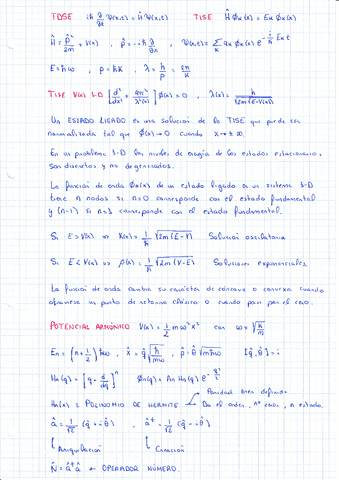 TDSE iħ ∂/∂t Ψ(x,t) = Ĥ Ψ(x,t) TISE Ĥ ϕk(x) = Ek ϕk(x)
Ĥ = p̂²/2m + V(x) , p̂ = -iħ ∂/∂x , Ψ(x,t) = Σk ak ϕk(x) e^(-i/ħ Ek t)
E = ħω , p = ħK , λ = h/p = 2π/K
TISE V(x) 1-D [d²/dx² + 4π²/λ²(x)] ϕ(x) = 0 , λ(x) = h/√2m(E-V(x))
UN ESTADO LIGADO es una solución de la TISE que puede ser
normalizada tal que ϕ(x) → 0 cuando x → ± ∞.
En un problema 1-D los niveles de energía de los estados estacionarios
son discretos y no degenerados.
La función de onda ϕn(x) de un estado ligado en un sistema 1-D
tiene n nodos si n=0 corresponde con el estado fundamental
y (n-1) si n=1 corresponde con el estado fundamental.
Si E > V(x) ⇒ K(x) = 1/ħ √2m(E-V) Solución oscilatoria
Si E < V(x) ⇒ ρ(x) = 1/ħ √2m(V-E) Soluciones exponenciales
La función de onda cambia su carácter de cóncava a convexa cuando
atraviesa un punto de retorno clásico o cuando pasa por el cero.
POTENCIAL ARMÓNICO V(x) = 1/2 m ω² x² con ω = √k/m
En = (n + 1/2) ħω , x̂ = q̂ √ħ/mω , p̂ = θ̂ √mħω [q̂, θ̂] = i
Hn(q) = [q - d/dq]ⁿ ϕn(q) = An Hn(q) e^(-q²/2)
Paridad bien definida
Hn(x) = POLINOMIO DE HERMITE Da el orden, nº ceros, n estado.
â = 1/√2 (q̂ + iθ̂) , â⁺ = 1/√2 (q̂ - iθ̂)
Aniquilación Creación
N̂ = â⁺â ← OPERADOR NÚMERO.